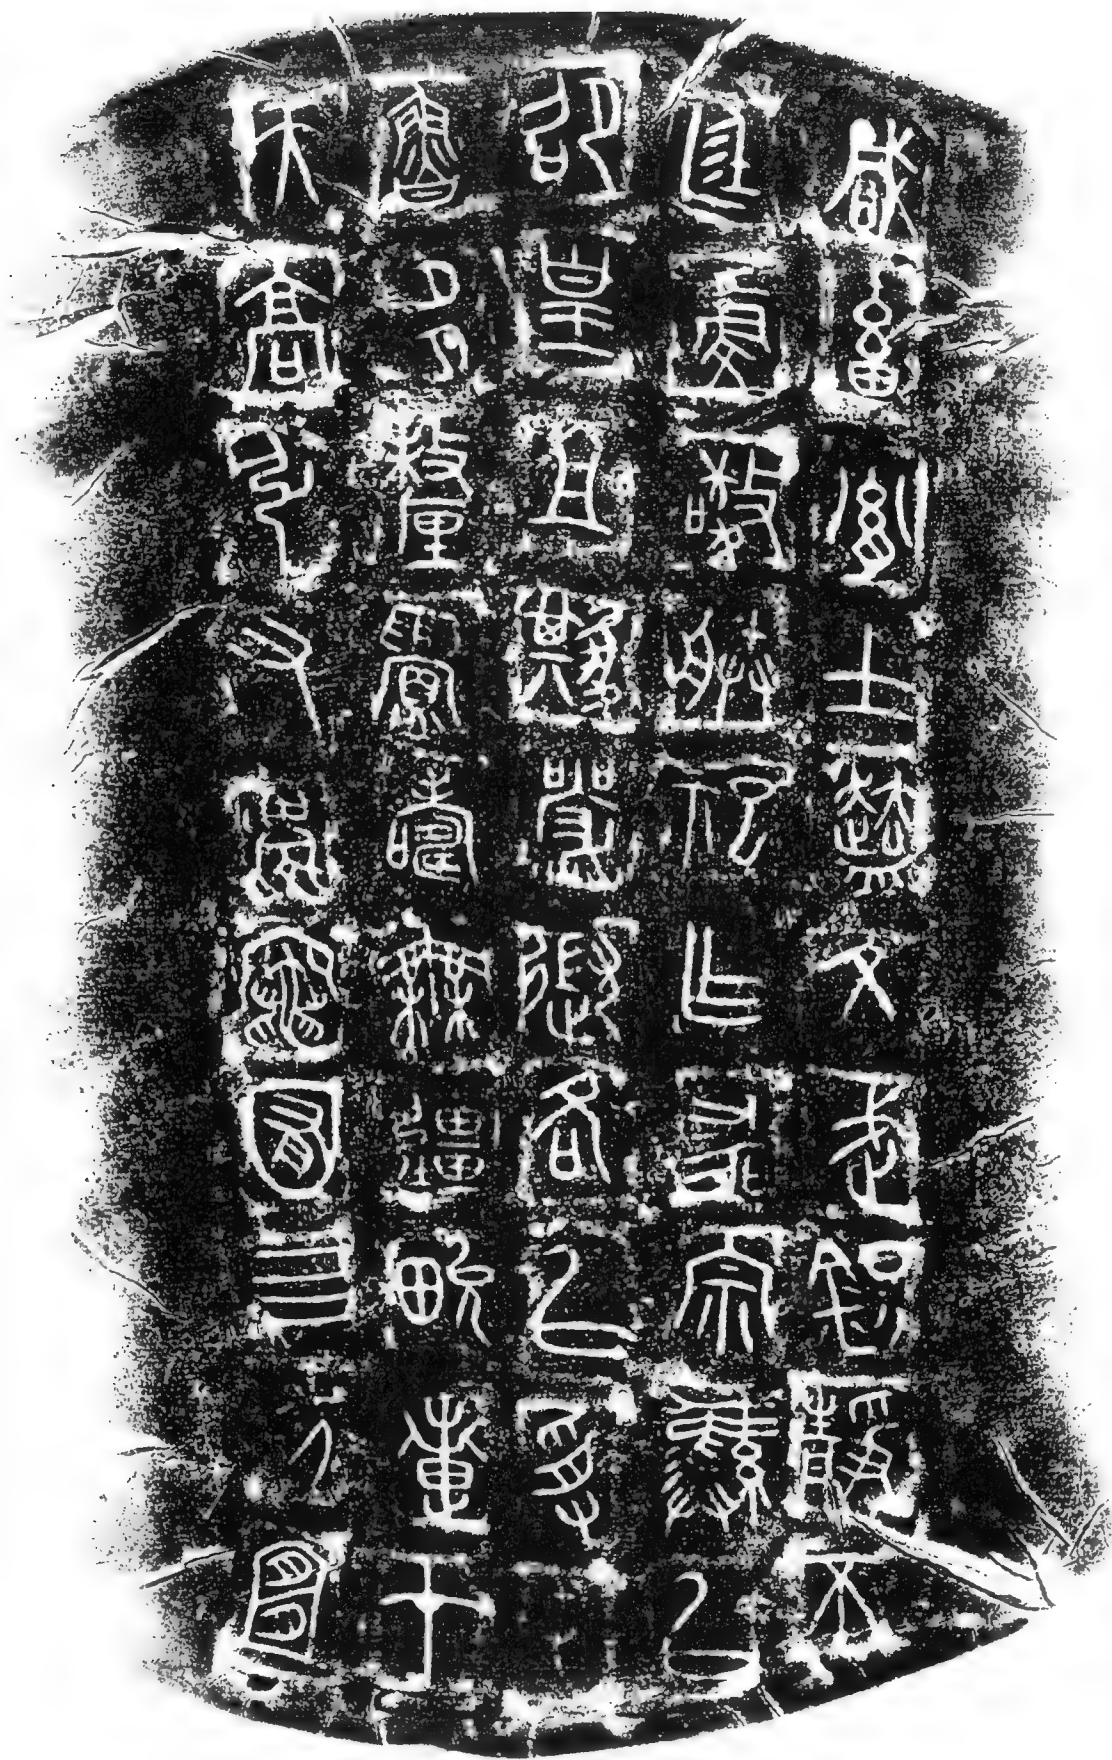 咸畜胤士趩文武鋠靜不
廷虔敬朕祀乍𠷎宗彝以
卲皇且𡢁嚴御各以受屯
魯多釐眉壽無疆畯疐才
天高引又慶竈囿四方宜